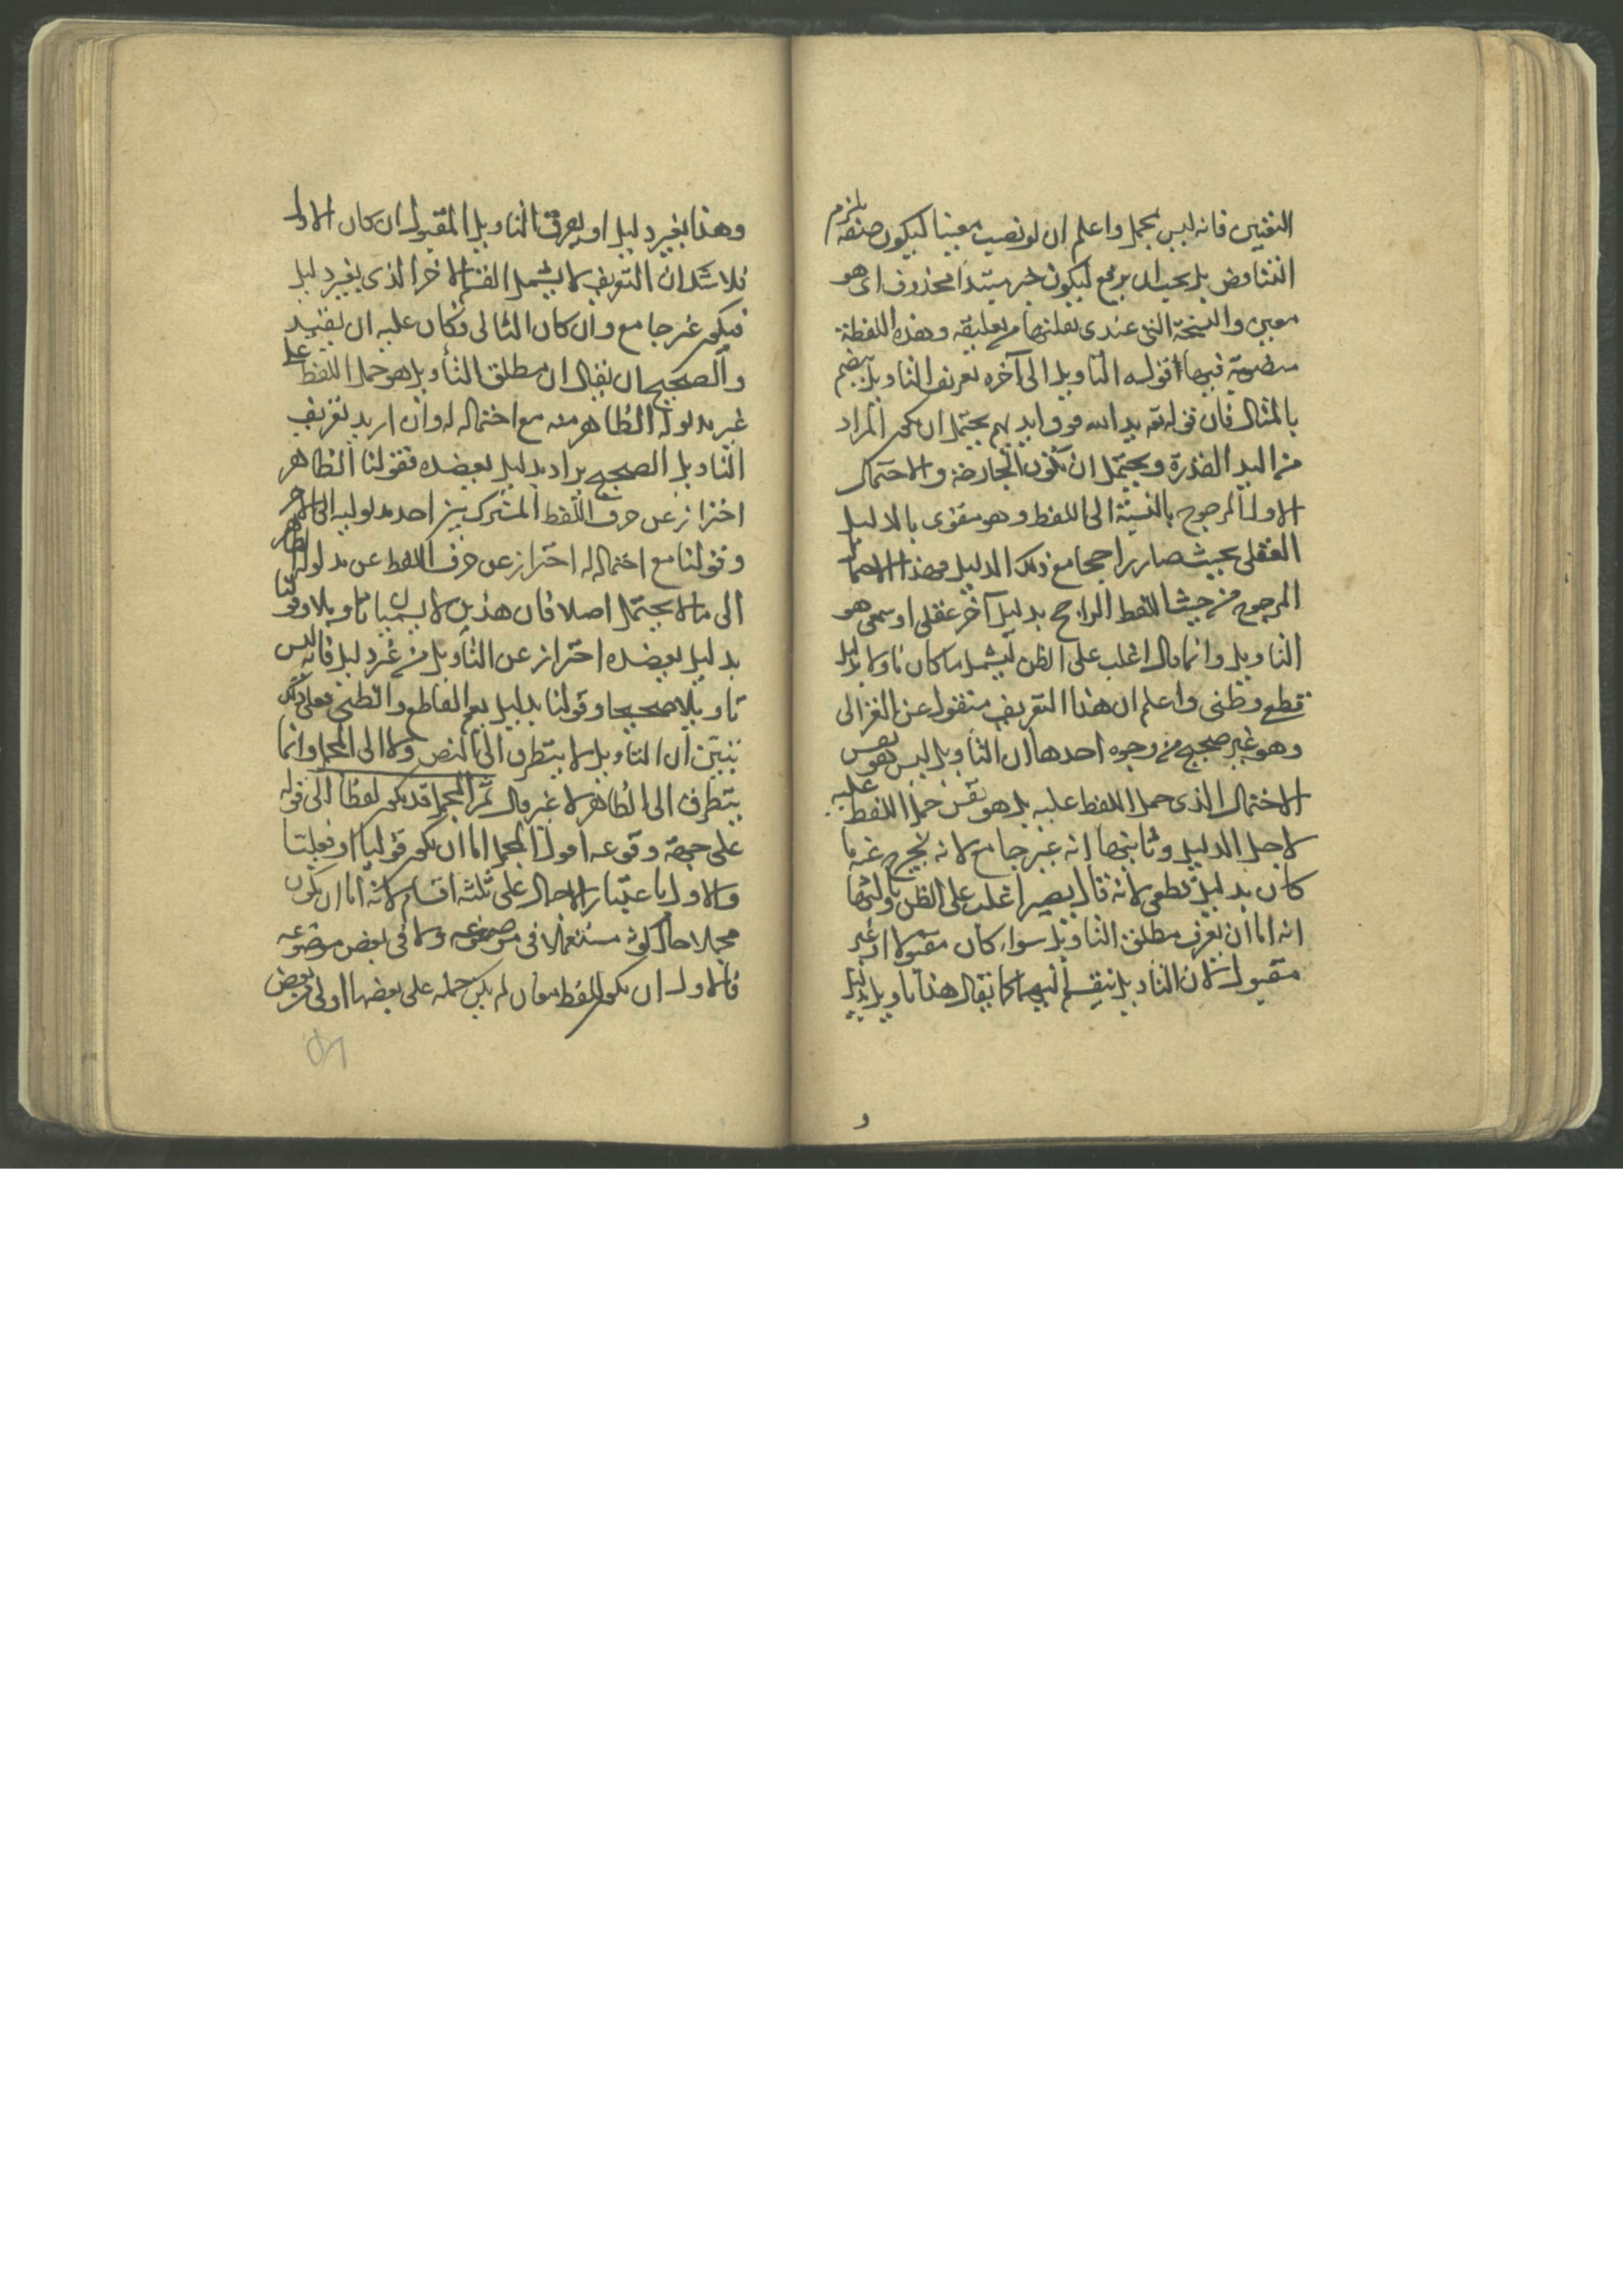 التعيين فانه ليس بمجمل واعلم ان لو نصب معينا ليكون صفة يلزم
التناقض بل يجب ان يرفع ليكون خبر مبتدا محذوف اى هو
معين والنسخة التى عندى نقلتها من تعليقه وهذه اللفظة
فيها اقوله التاويل الى آخره تعريف التاويل يتضح
بالمثال فان قوله تع يد الله فوق ايديهم يحتمل ان يكون المراد
من اليد القدرة ويحتمل ان يكون الجارحة والاحتمال
الاول المرجوح بالنسبة الى اللفظ وهو مقوى بالدليل
العقلى بحيث صار راجحا مع ذلك الدليل فهذا الاحتمال
المرجوح من حيث اللفظ الراجح بدليل آخر عقلى او سمعى هو
التاويل وانما قال اغلب على الظن ليشمل ما كان تاويلا بدليل
قطعى وظنى واعلم ان هذا التعريف منقول عن الغزالى
وهو غير صحيح من وجوه احدها ان التاويل ليس هو نفس
الاحتمال الذى حمل اللفظ عليه بل هو نفس حمل اللفظ عليه
لاجل الدليل وثانيها انه غير جامع لانه يخرج عنه ما
كان بدليل قطعى لانه قال يصير اغلب على الظن وثالثها
انه اما ان يعرف مطلق التاويل سواء كان مقبولا او غير
مقبول لان التاويل ينقسم اليهما كما يقال هذا تاويل بدليل
و
وهذا بغير دليل او يعرف التاويل المقبول ان كان الاول
فلا شك ان التعريف لا يشمل القسم الاخر الذى بغير دليل
فيكون غير جامع وان كان الثانى فكان عليه ان يقيد
والصحيح ان يقال ان مطلق التأويل هو حمل اللفظ على
غير مدلوله الظاهر منه مع احتماله له وان اريد تعريف
التاويل الصحيح يراد بدليل يعضده فقولنا الظاهر
احتراز عن صرف اللفظ المشترك من احد مدلوليه الى الاخر
وقولنا مع احتماله له احتراز عن صرف اللفظ عن مدلوله الظاهر
الى ما لا يحتمل اصلا فان هذين لا يسميان تاويلا وقولنا
بدليل يعضده احتراز عن التأويل من غير دليل فانه ليس
تاويلا صحيحا وقولنا بدليل يعم القاطع والظنى فعلى ذلك
تبين ان التاويل لا يتطرق الى النص ولا الى المجمل وانما
يتطرق الى الظاهر لا غير قال ثم المجمل قد يكون لفظا الى قوله
على جهة وقوعه اقول المجمل اما ان يكون قوليا او فعليا
والاول باعتبار الاجمال على ثلثة اقسام لانه اما ان يكون
مجملا حال كونه مستعملا فى موضوعه ولا فى بعض موضوعه
فالاول ان يكون للفظ معان لم يكن حمله على بعضها اولى من بعض